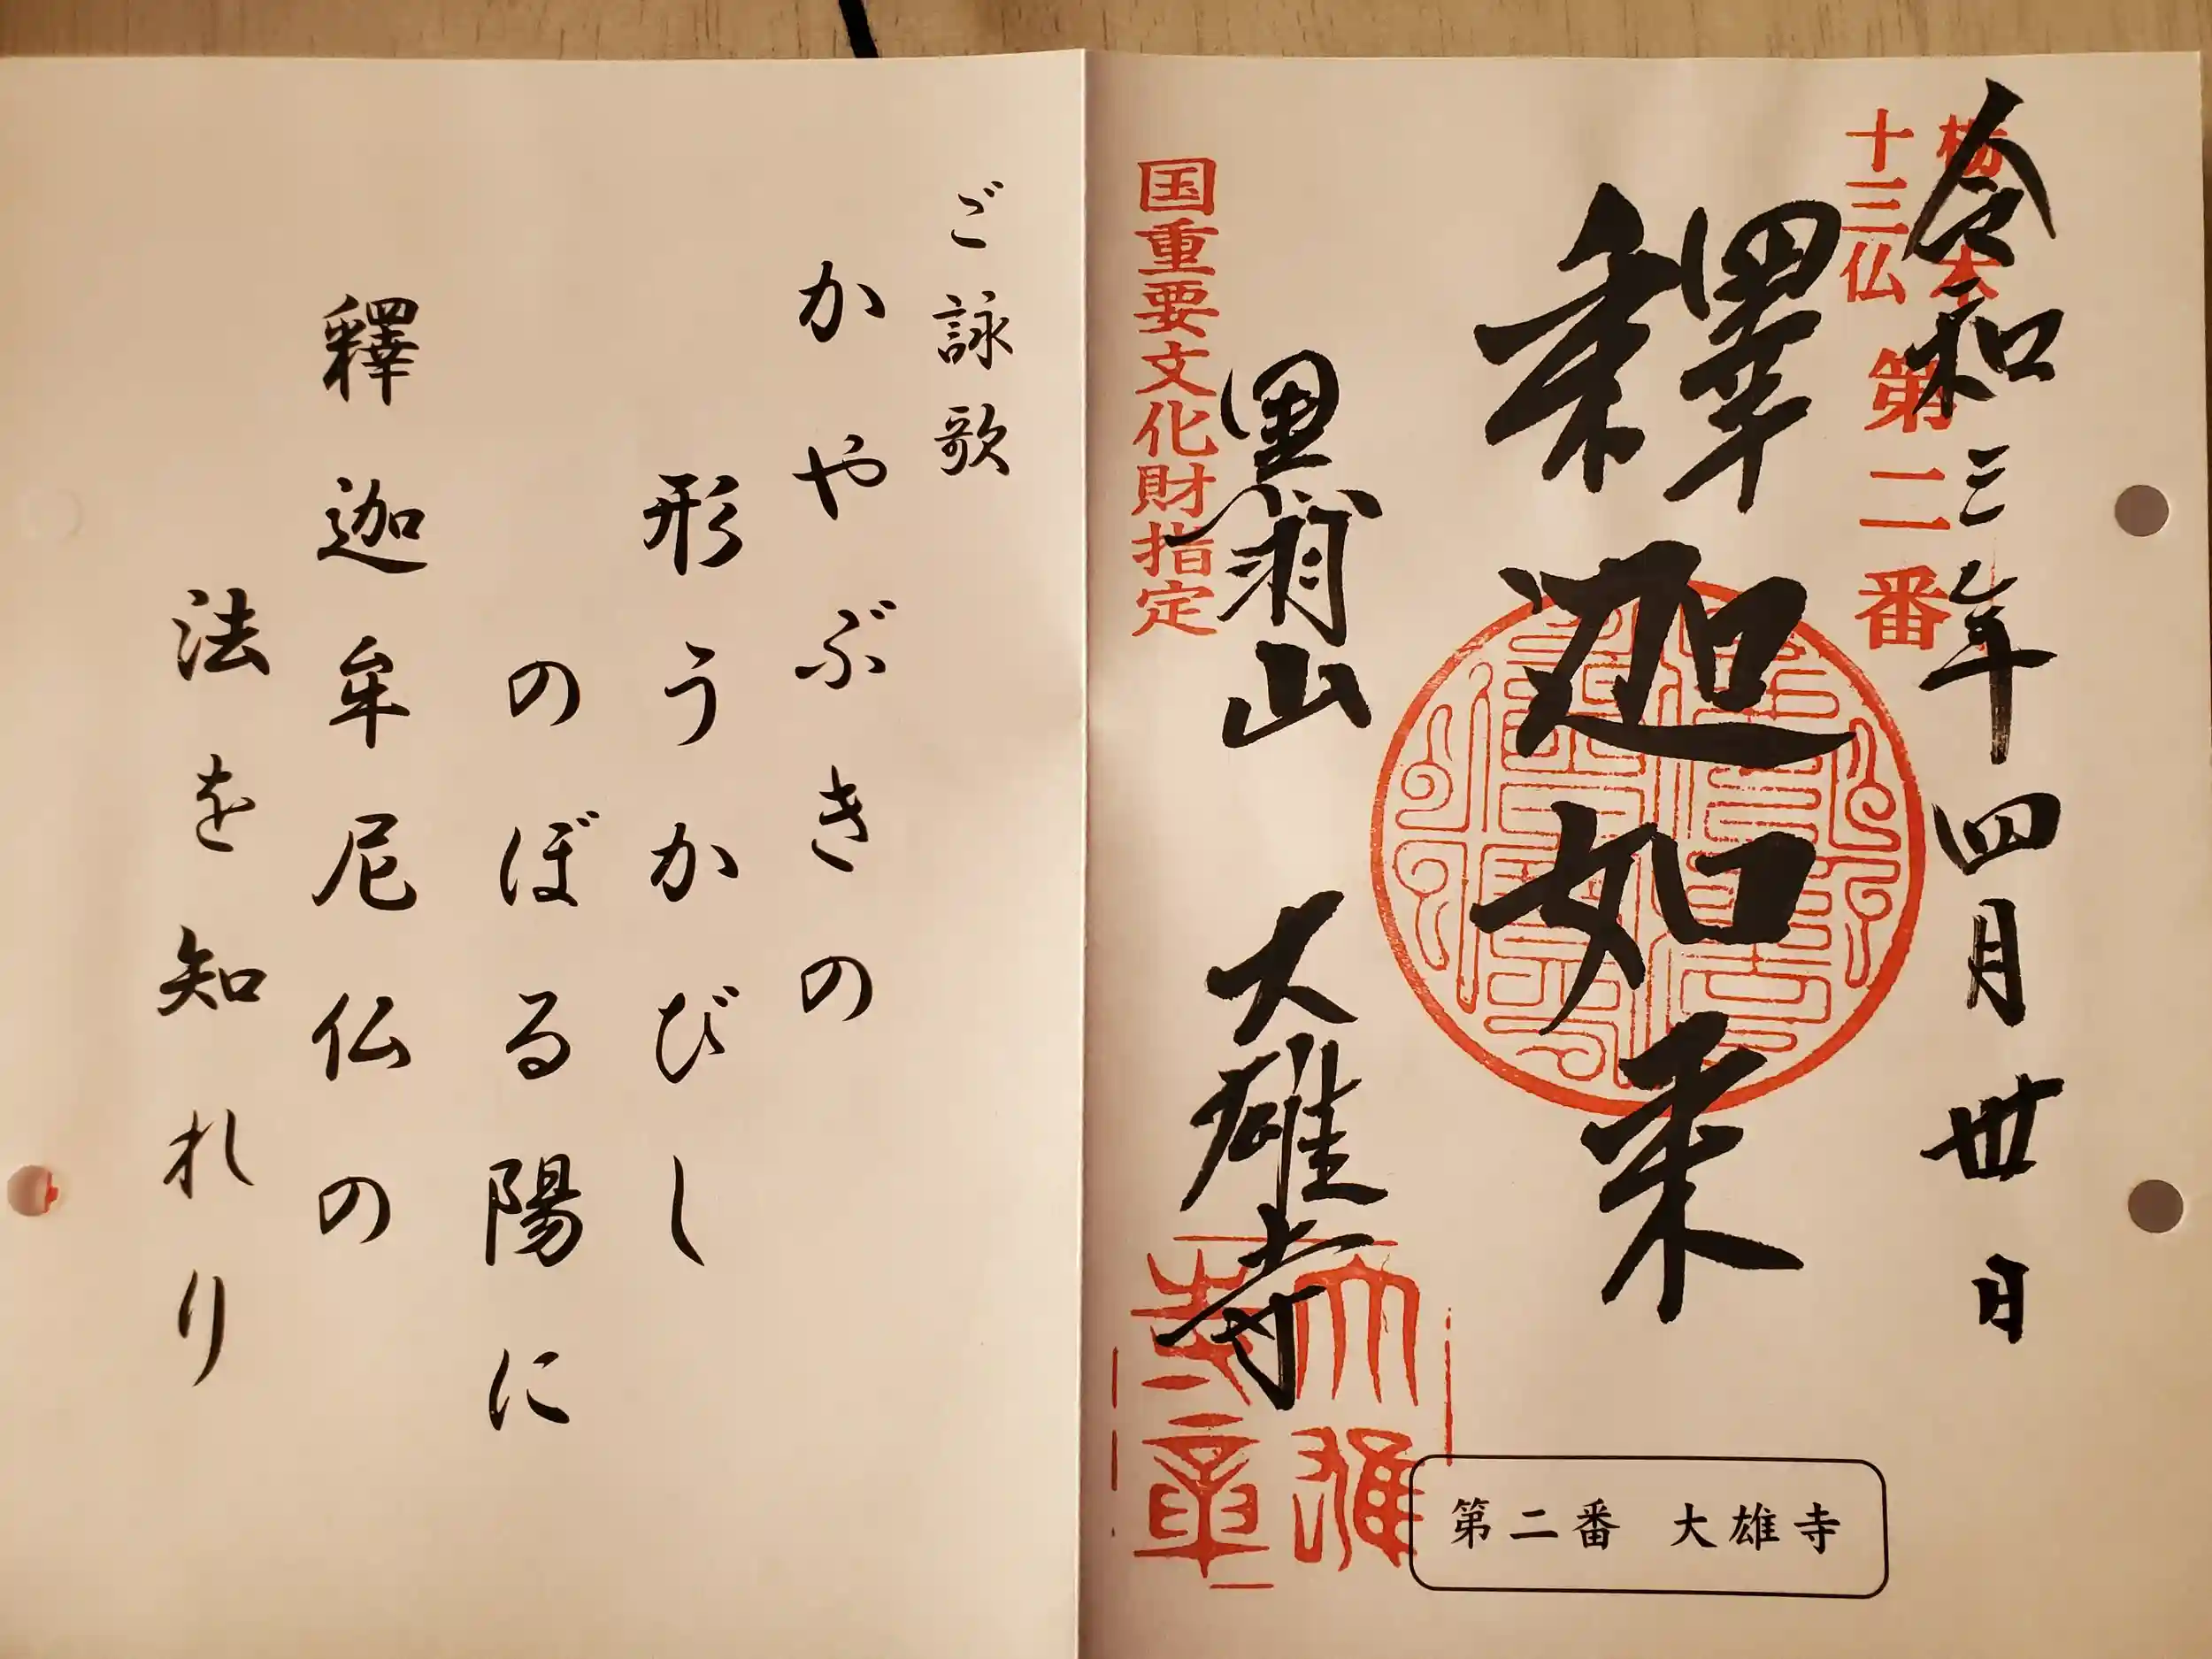 令和三年四月丗日
栃木
十三仏
第二番
釋迦如来
黒羽山 大雄寺
国重要文化財指定
大雄
寺章
第二番 大雄寺
ご詠歌
かやぶきの
形うかびし
のぼる陽に
釋迦牟尼仏の
法を知れり